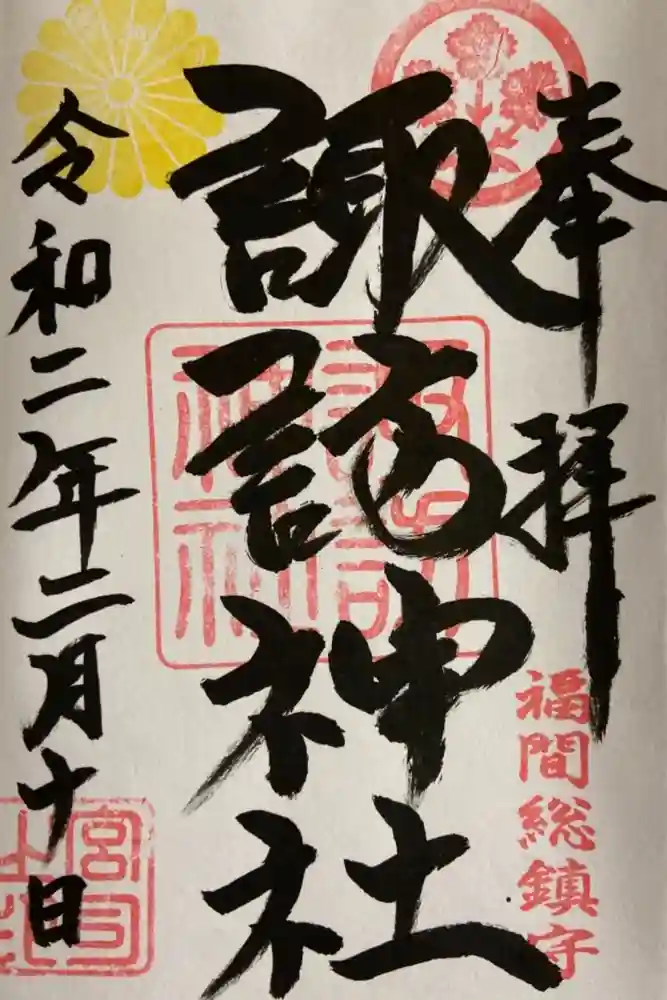 奉拝
福間総鎮守
諏訪神社
諏訪神社
令和二年二月十日